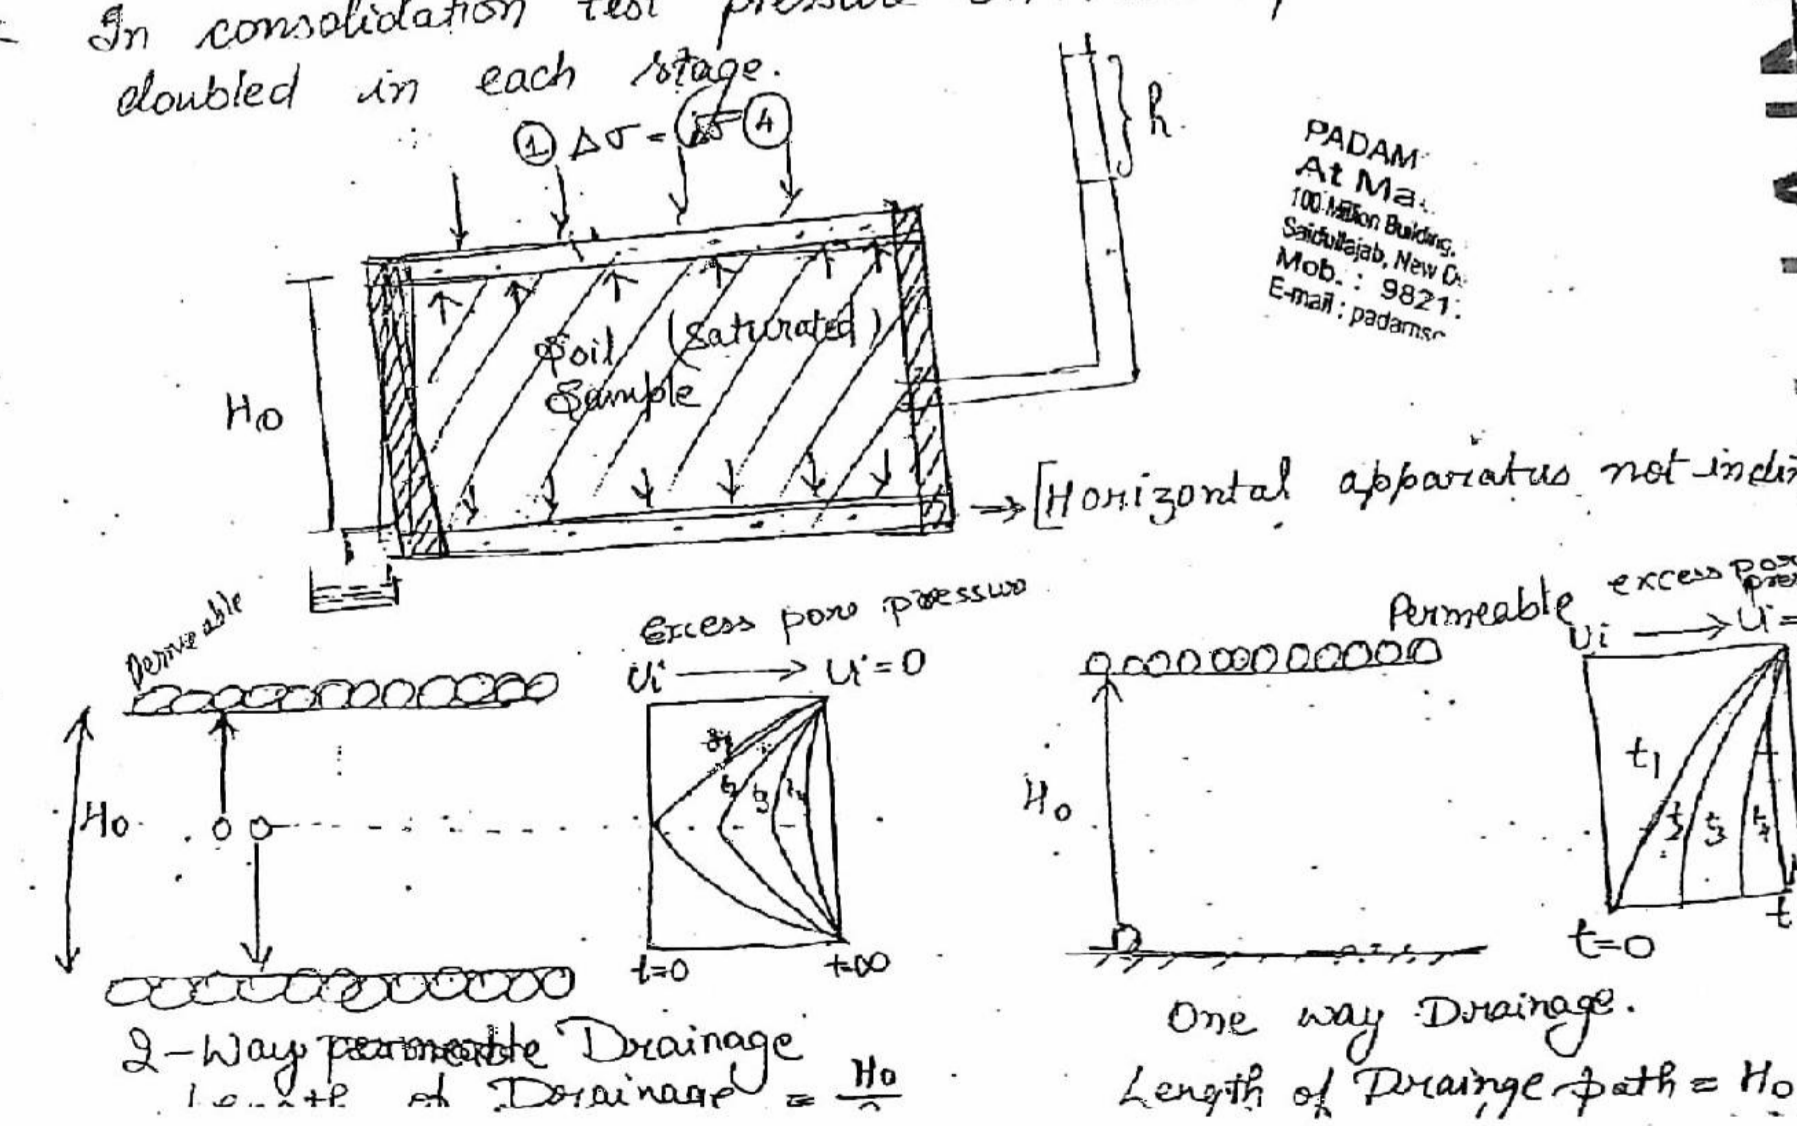 In consolidation test pressure
doubled in each stage.
① Δσ = ④
h.
PADAM
At Ma
100 Million Building,
Saidullajab, New D
Mob. : 9821
E-mail : padamso
Soil (saturated)
Sample
H₀
→ [Horizontal apparatus not
Permeable
Excess pore pressure
Ui → Ui = 0
H₀
t=0 t=∞
2-Way Drainage
Length of Drainage = H₀
Permeable
excess
Ui → Ui =
H₀
t₁ t₂ t₃ t₄
t=0 t
One way Drainage.
Length of Drainge path = H₀